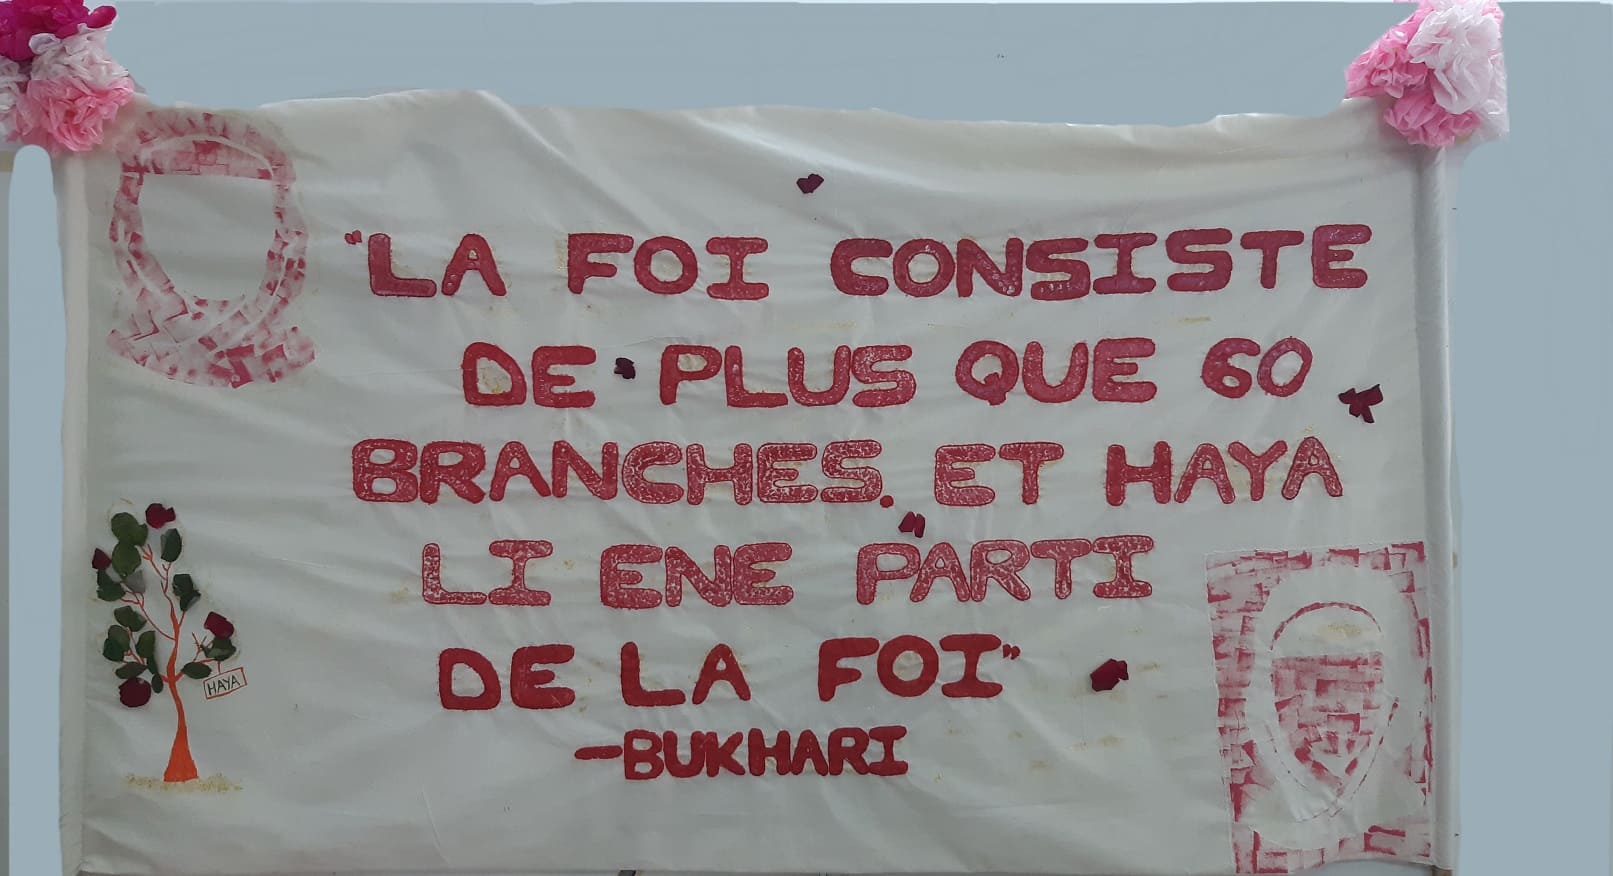 "LA FOI CONSISTE
DE PLUS QUE 60
BRANCHES. ET HAYA
LI ENE PARTI
DE LA FOI"
-BUKHARI
HAYA